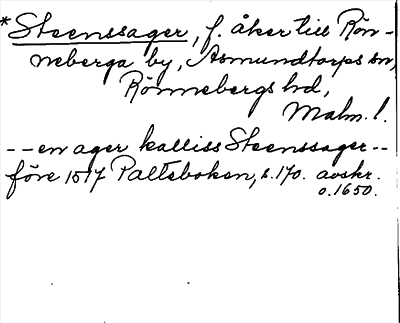 *Steenssager, f. åker till Rön-
neberga by, Asmundtorps sn,
Rönnebergs hd,
Malm. l.
-- en ager kalliss Steenssager --
före 1517 Palteboken, s. 170. avskr.
o. 1650.